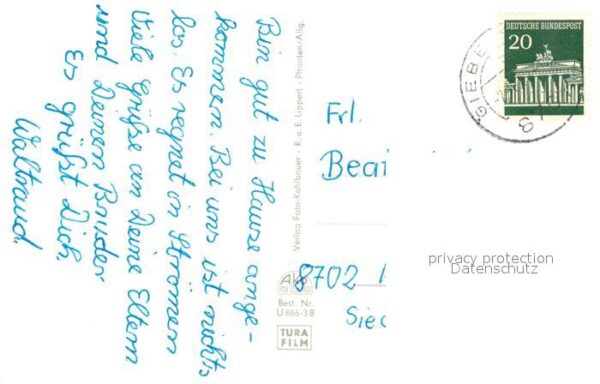 Bin gut zu Hause ange-
kommen. Bei uns ist nichts
los. Es regnet in Strömen
Viele Grüße an Deine Eltern
und Deinen Bruder
Es grüßt Dich,
Waltraud.
Verlag Foto-Kohlbauer - R. u. E. Lippert - Pfronten/Allg.
Best. Nr.
U 866-3B
TURA
FILM
DEUTSCHE BUNDESPOST
20
GIEBE
Frl.
Beat
8702
Sied
privacy protection
Datenschutz